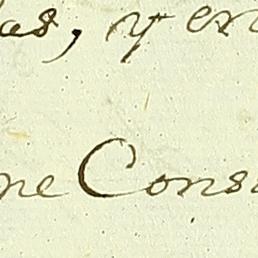 as, y en
ne Cons